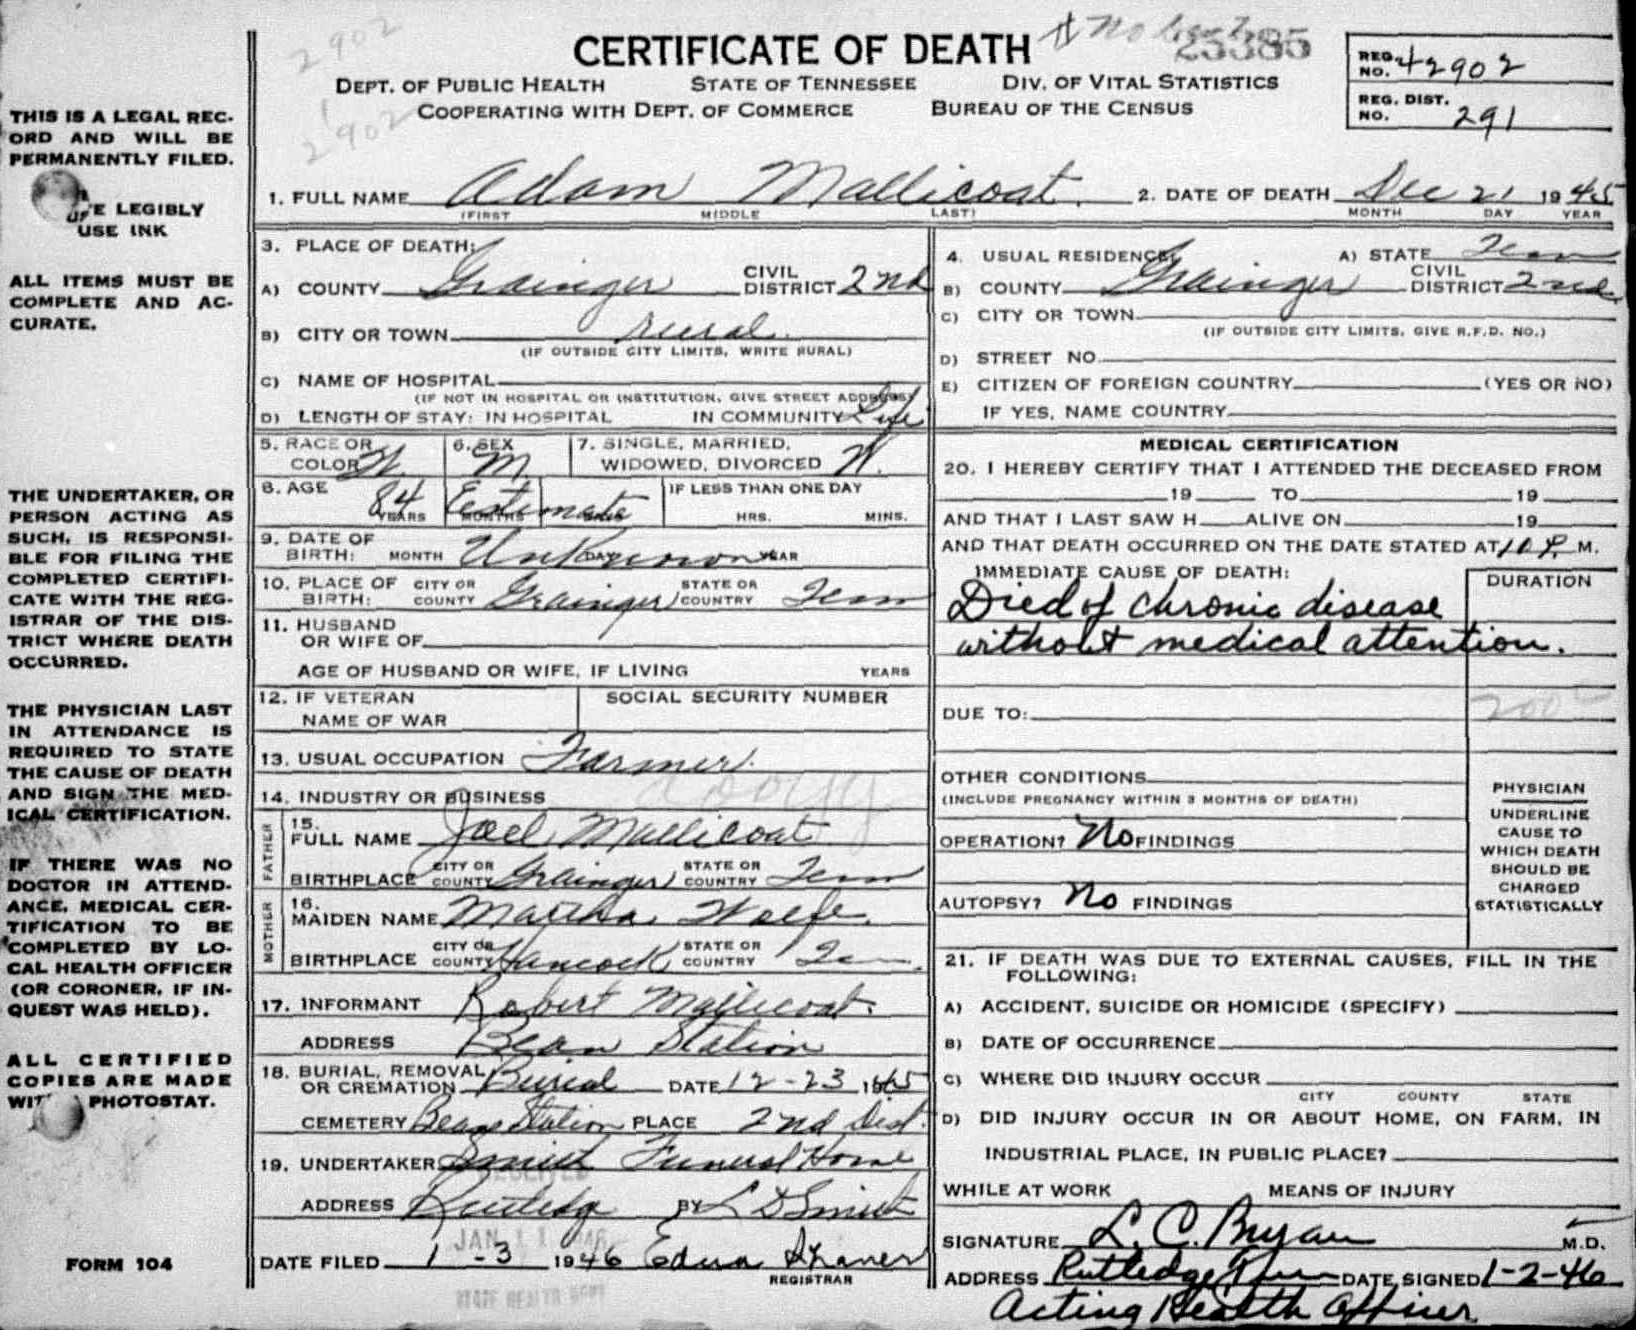 CERTIFICATE OF DEATH
25385
2902
2902
DEPT. OF PUBLIC HEALTH STATE OF TENNESSEE DIV. OF VITAL STATISTICS
COOPERATING WITH DEPT. OF COMMERCE BUREAU OF THE CENSUS
REG. NO. 42902
REG. DIST. NO. 291
THIS IS A LEGAL REC-
ORD AND WILL BE
PERMANENTLY FILED.
LEGIBLY
USE INK
ALL ITEMS MUST BE
COMPLETE AND AC-
CURATE.
THE UNDERTAKER, OR
PERSON ACTING AS
SUCH, IS RESPONSI-
BLE FOR FILING THE
COMPLETED CERTIFI-
CATE WITH THE REG-
ISTRAR OF THE DIS-
TRICT WHERE DEATH
OCCURRED.
THE PHYSICIAN LAST
IN ATTENDANCE IS
REQUIRED TO STATE
THE CAUSE OF DEATH
AND SIGN THE MED-
ICAL CERTIFICATION.
IF THERE WAS NO
DOCTOR IN ATTEND-
ANCE, MEDICAL CER-
TIFICATION TO BE
COMPLETED BY LO-
CAL HEALTH OFFICER
(OR CORONER, IF IN-
QUEST WAS HELD).
ALL CERTIFIED
COPIES ARE MADE
PHOTOSTAT.
FORM 104
1. FULL NAME Adam Mallicoat 2. DATE OF DEATH Dec 21 1945
(FIRST MIDDLE LAST) MONTH DAY YEAR
3. PLACE OF DEATH:
A) COUNTY Grainger CIVIL DISTRICT 2nd
B) CITY OR TOWN rural
(IF OUTSIDE CITY LIMITS, WRITE RURAL)
C) NAME OF HOSPITAL
(IF NOT IN HOSPITAL OR INSTITUTION, GIVE STREET ADDRESS)
D) LENGTH OF STAY: IN HOSPITAL IN COMMUNITY Life
5. RACE OR COLOR W. 6. SEX M 7. SINGLE, MARRIED, WIDOWED, DIVORCED W.
8. AGE 84 YEARS Estimate MONTHS DAYS IF LESS THAN ONE DAY HRS. MINS.
9. DATE OF BIRTH: MONTH Unknown DAY YEAR
10. PLACE OF BIRTH: CITY OR COUNTY Grainger STATE OR COUNTRY Tenn
11. HUSBAND OR WIFE OF
AGE OF HUSBAND OR WIFE, IF LIVING YEARS
12. IF VETERAN NAME OF WAR SOCIAL SECURITY NUMBER
13. USUAL OCCUPATION Farmer.
14. INDUSTRY OR BUSINESS
FATHER
15. FULL NAME Joel Mallicoat
BIRTHPLACE CITY OR COUNTY Grainger STATE OR COUNTRY Tenn
MOTHER
16. MAIDEN NAME Martha Wolfe.
BIRTHPLACE CITY OR COUNTY Hancock STATE OR COUNTRY Tenn.
17. INFORMANT Robert Mallicoat.
ADDRESS Bean Station
18. BURIAL, REMOVAL OR CREMATION Burial DATE 12-23 1945
CEMETERY Bean Station PLACE 2nd Dist.
19. UNDERTAKER Smith Funeral Home
RECEIVED
ADDRESS Rutledge BY L D Smith
JAN 11
DATE FILED 1-3 1946 Edna Shaner
REGISTRAR
STATE HEALTH DEPT
4. USUAL RESIDENCE: A) STATE Tenn
B) COUNTY Grainger CIVIL DISTRICT 2nd
C) CITY OR TOWN
(IF OUTSIDE CITY LIMITS, GIVE R.F.D. NO.)
D) STREET NO.
E) CITIZEN OF FOREIGN COUNTRY (YES OR NO)
IF YES, NAME COUNTRY
MEDICAL CERTIFICATION
20. I HEREBY CERTIFY THAT I ATTENDED THE DECEASED FROM
19 TO 19
AND THAT I LAST SAW H ALIVE ON 19
AND THAT DEATH OCCURRED ON THE DATE STATED AT 10 P. M.
IMMEDIATE CAUSE OF DEATH: DURATION
Died of chronic disease
without medical attention.
200
DUE TO:
OTHER CONDITIONS
(INCLUDE PREGNANCY WITHIN 3 MONTHS OF DEATH)
OPERATION? No FINDINGS
AUTOPSY? No FINDINGS
PHYSICIAN
UNDERLINE
CAUSE TO
WHICH DEATH
SHOULD BE
CHARGED
STATISTICALLY
21. IF DEATH WAS DUE TO EXTERNAL CAUSES, FILL IN THE
FOLLOWING:
A) ACCIDENT, SUICIDE OR HOMICIDE (SPECIFY)
B) DATE OF OCCURRENCE
C) WHERE DID INJURY OCCUR
CITY COUNTY STATE
D) DID INJURY OCCUR IN OR ABOUT HOME, ON FARM, IN
INDUSTRIAL PLACE, IN PUBLIC PLACE?
WHILE AT WORK MEANS OF INJURY
SIGNATURE L. C. Bryan M.D.
ADDRESS Rutledge Tenn DATE SIGNED 1-2-46
Acting Health Officer